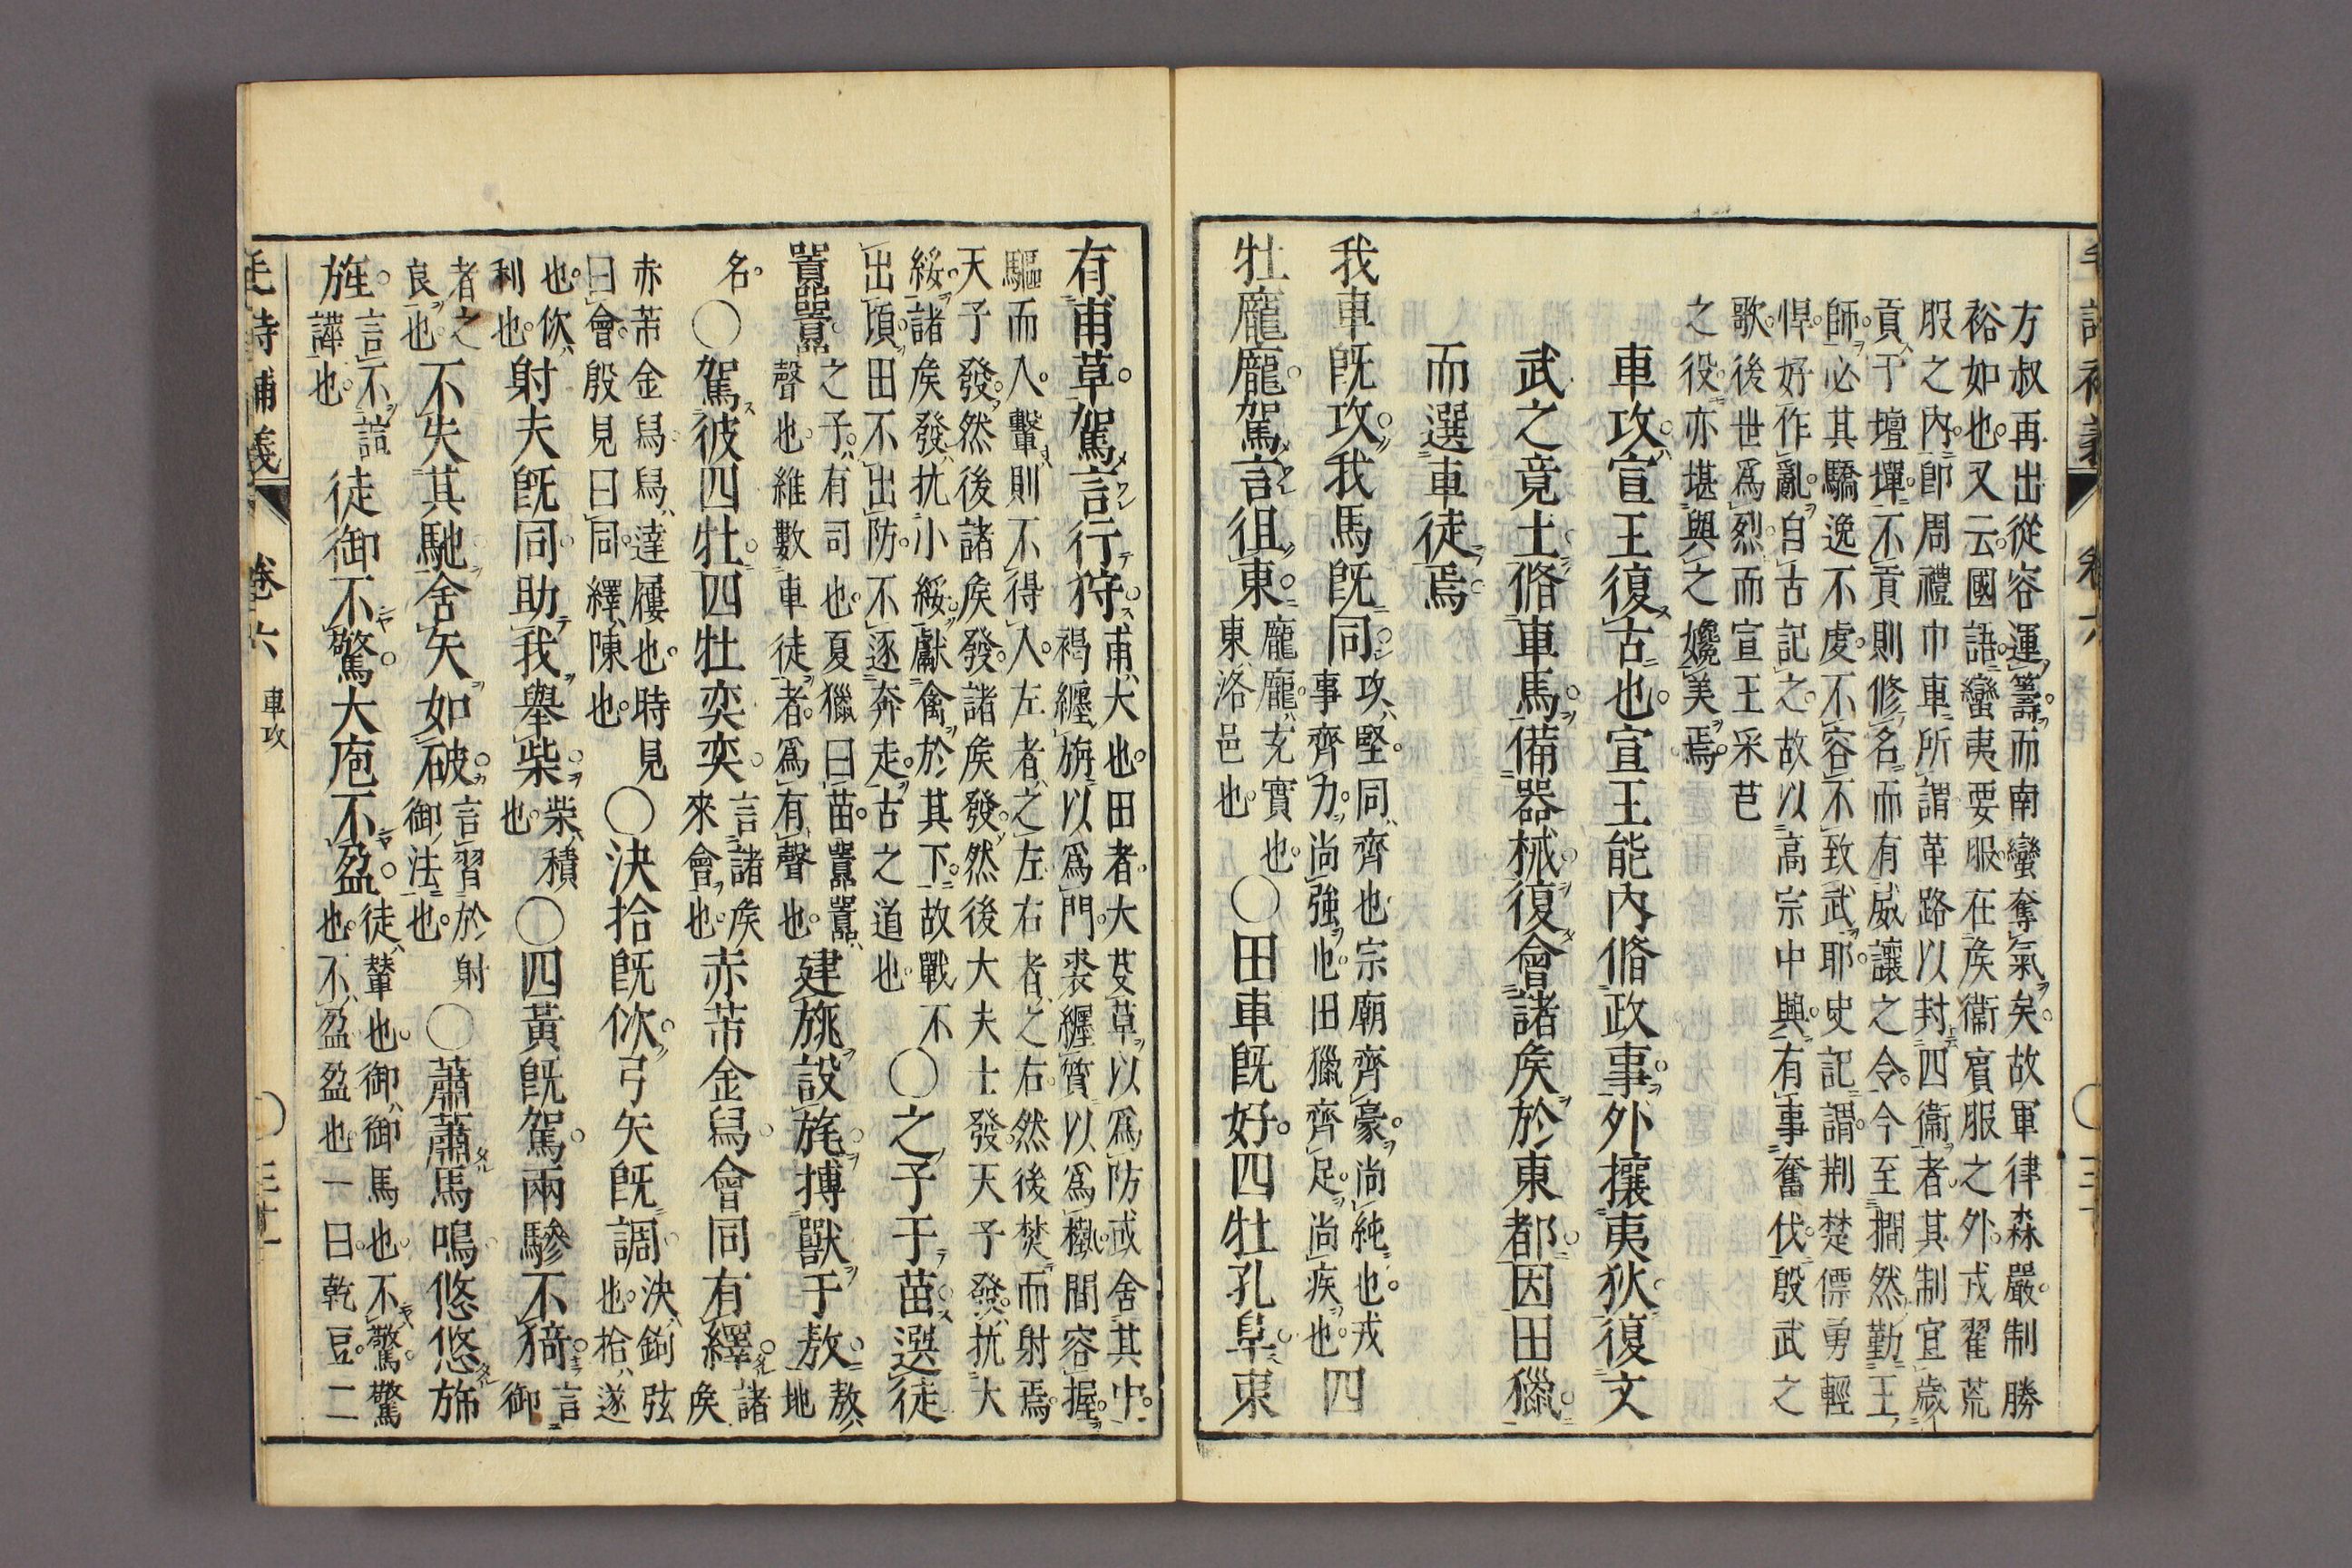 方叔再出從容運籌而南蠻奪氣矣故軍律森嚴制勝
裕如也又云國語蠻夷要服在矦衞賓服之外戎翟荒
服之內卽周禮巾車所謂革路以封四衞者其制宜歲
貢于壇墠不貢則修名而有威讓之令今至擱然勤王
師必其驕逸不虔不容不致武耶史記謂荆楚僄勇輕
悍好作亂自古記之故以高宗中興有事奮伐殷武之
歌後世爲烈而宣王采芑
之役亦堪與之孅美焉
車攻宣王復古也宣王能內脩政事外攘夷狄復文
武之竟土脩車馬備器械復會諸矦於東都因田獵
而選車徒焉
我車旣攻我馬旣同攻堅同齊也宗廟齊豪尚純也戎事齊力尚強也田獵齊足尚疾也四
牡龐龐駕言徂東龐龐充實也東洛邑也○田車旣好四牡孔阜東
有甫草駕言行狩甫大也田者大芟草以爲防或舍其中褐纏旃以爲門裘纏質以爲槸間容握
驅而入轚則不得入左者之左右者之右然後焚而射焉
天子發然後諸矦發諸矦發然後大夫士發天子發抗大
綏諸矦發抗小綏獻禽於其下故戰不
出頃田不出防不逐奔走古之道也○之子于苗選徒
囂囂之子有司也夏獵曰苗囂囂聲也維數車徒者爲有聲也建旐設旄搏獸于敖敖地
名○駕彼四牡四牡奕奕言諸矦來會也赤芾金舄會同有繹諸矦
赤芾金舄舄達屨也時見
曰會殷見曰同繹陳也○決拾旣佽弓矢旣調決鉤弦也拾遂
也佽利也射夫旣同助我舉柴柴積也○四黃旣駕兩驂不猗言御
者之良也不失其馳舍矢如破言習於射御法也○蕭蕭馬鳴悠悠旆
旌言不諠譁也徒御不驚大庖不盈徒輦也御御馬也不驚驚也不盈盈也一曰乾豆二
毛詩補義 卷六 車攻